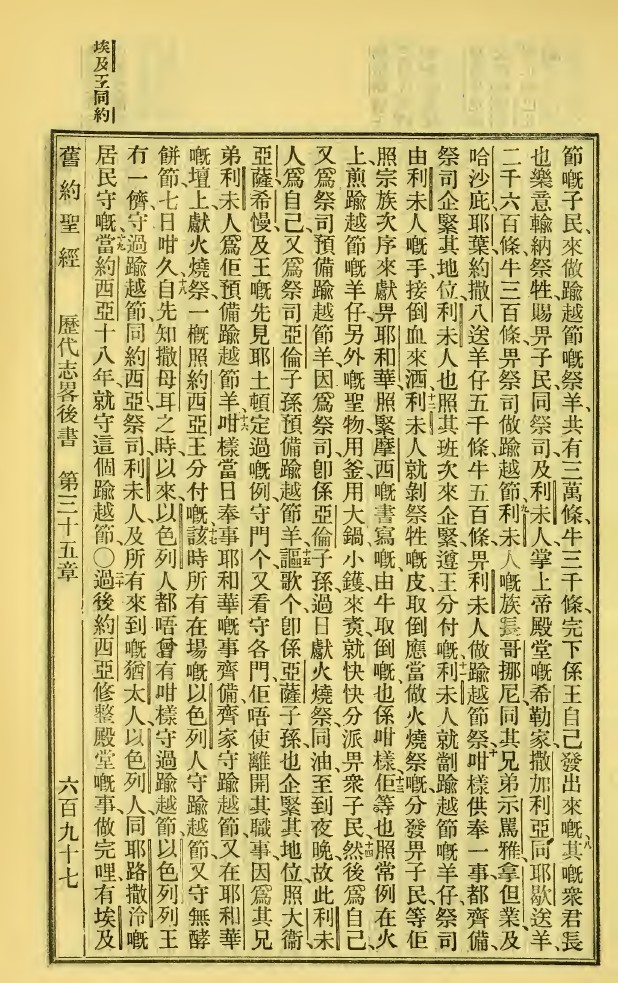 埃及王同約
節嘅子民來做踰越節嘅祭羊共有三萬條牛三千條完下係王自己發出來嘅八其嘅衆君長
也樂意輸納祭牲賜畀子民同祭司及利未人掌上帝殿堂嘅希勒家撒加利亞同耶歇送羊
二千六百條牛三百條畀祭司做踰越節九利未人嘅族長哥挪尼同其兄弟示罵雅拿但業及
哈沙庇耶葉約撒八送羊仔五千條牛五百條畀利未人做踰越節祭十咁樣供奉一事都齊備
祭司企緊其地位利未人也照其班次來企緊遵王分付嘅十一利未人就劏踰越節嘅羊仔祭司
由利未人嘅手接倒血來洒十二利未人就剝祭牲嘅皮取倒應當做火燒祭嘅分發畀子民等佢
照宗族次序來獻畀耶和華照緊摩西嘅書寫嘅由牛取倒嘅也係咁樣十三佢等也照常例在火
上煎踰越節嘅羊仔另外嘅聖物用釜用大鍋小鑊來煑就快快分派畀衆子民十四然後爲自己
又爲祭司預備踰越節羊因爲祭司卽係亞倫子孫過日獻火燒祭同油至到夜晚故此利未
人爲自己又爲祭司亞倫子孫預備踰越節羊十五謳歌个卽係亞薩子孫也企緊其地位照大衞
亞薩希慢及王嘅先見耶土頓定過嘅例守門个又看守各門佢唔使離開其職事因爲其兄
弟利未人爲佢預備踰越節羊十六咁樣當日奉事耶和華嘅事齊備齊家守踰越節又在耶和華
嘅壇上獻火燒祭一槪照約西亞王分付嘅十七該時所有在場嘅以色列人守踰越節又守無酵
餅節七日咁久十八自先知撒母耳之時以來以色列人都唔曾有咁樣守過踰越節以色列列王
冇一儕守過踰越節同約西亞祭司利未人及所有來到嘅猶太人以色列人同耶路撒冷嘅
居民守嘅十九當約西亞十八年就守這個踰越節〇二十過後約西亞修整殿堂嘅事做完哩有埃及
舊約聖經 歷代志畧後書 第三十五章 六百九十七